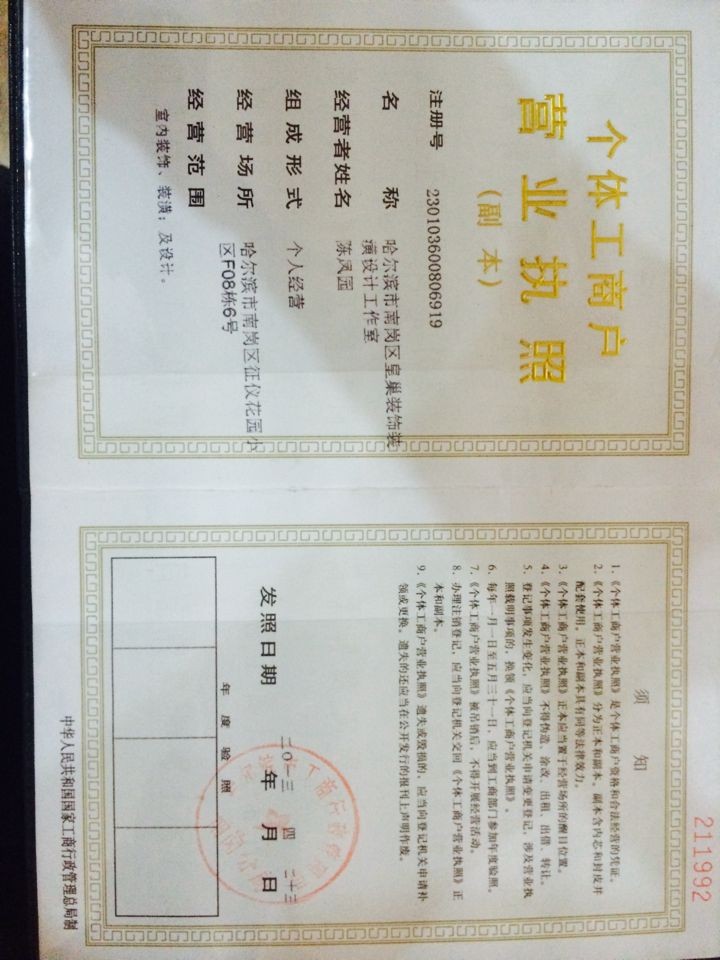 个体工商户
营业执照
(副本)
注册号 230103600806919
名称 哈尔滨市南岗区皇巢装饰装
潢设计工作室
经营者姓名 陈凤园
组成形式 个人经营
经营场所 哈尔滨市南岗区征仪花园小
区F08栋6号
经营范围
室内装饰、装潢;及设计。
211992
须知
1.《个体工商户营业执照》是个体工商户资格和合法经营的凭证。
2.《个体工商户营业执照》分为正本和副本,副本含内芯和封皮并
配套使用。正本和副本具有同等法律效力。
3.《个体工商户营业执照》正本应当置于经营场所的醒目位置。
4.《个体工商户营业执照》不得伪造、涂改、出租、出借、转让。
5.登记事项发生变化,应当向登记机关申请变更登记,涉及营业执
照载明事项的,换领《个体工商户营业执照》。
6.每年一月一日至五月三十一日,应当到工商部门参加年度验照。
7.《个体工商户营业执照》被吊销后,不得开展经营活动。
8.办理注销登记,应当向登记机关交回《个体工商户营业执照》正
本和副本。
9.《个体工商户营业执照》遗失或毁损的,应当向登记机关申请补
领或更换。遗失的还应当在公开发行的报刊上声明作废。
发照日期 二〇一三年四月二十三日
年度验照
中华人民共和国国家工商行政管理总局制